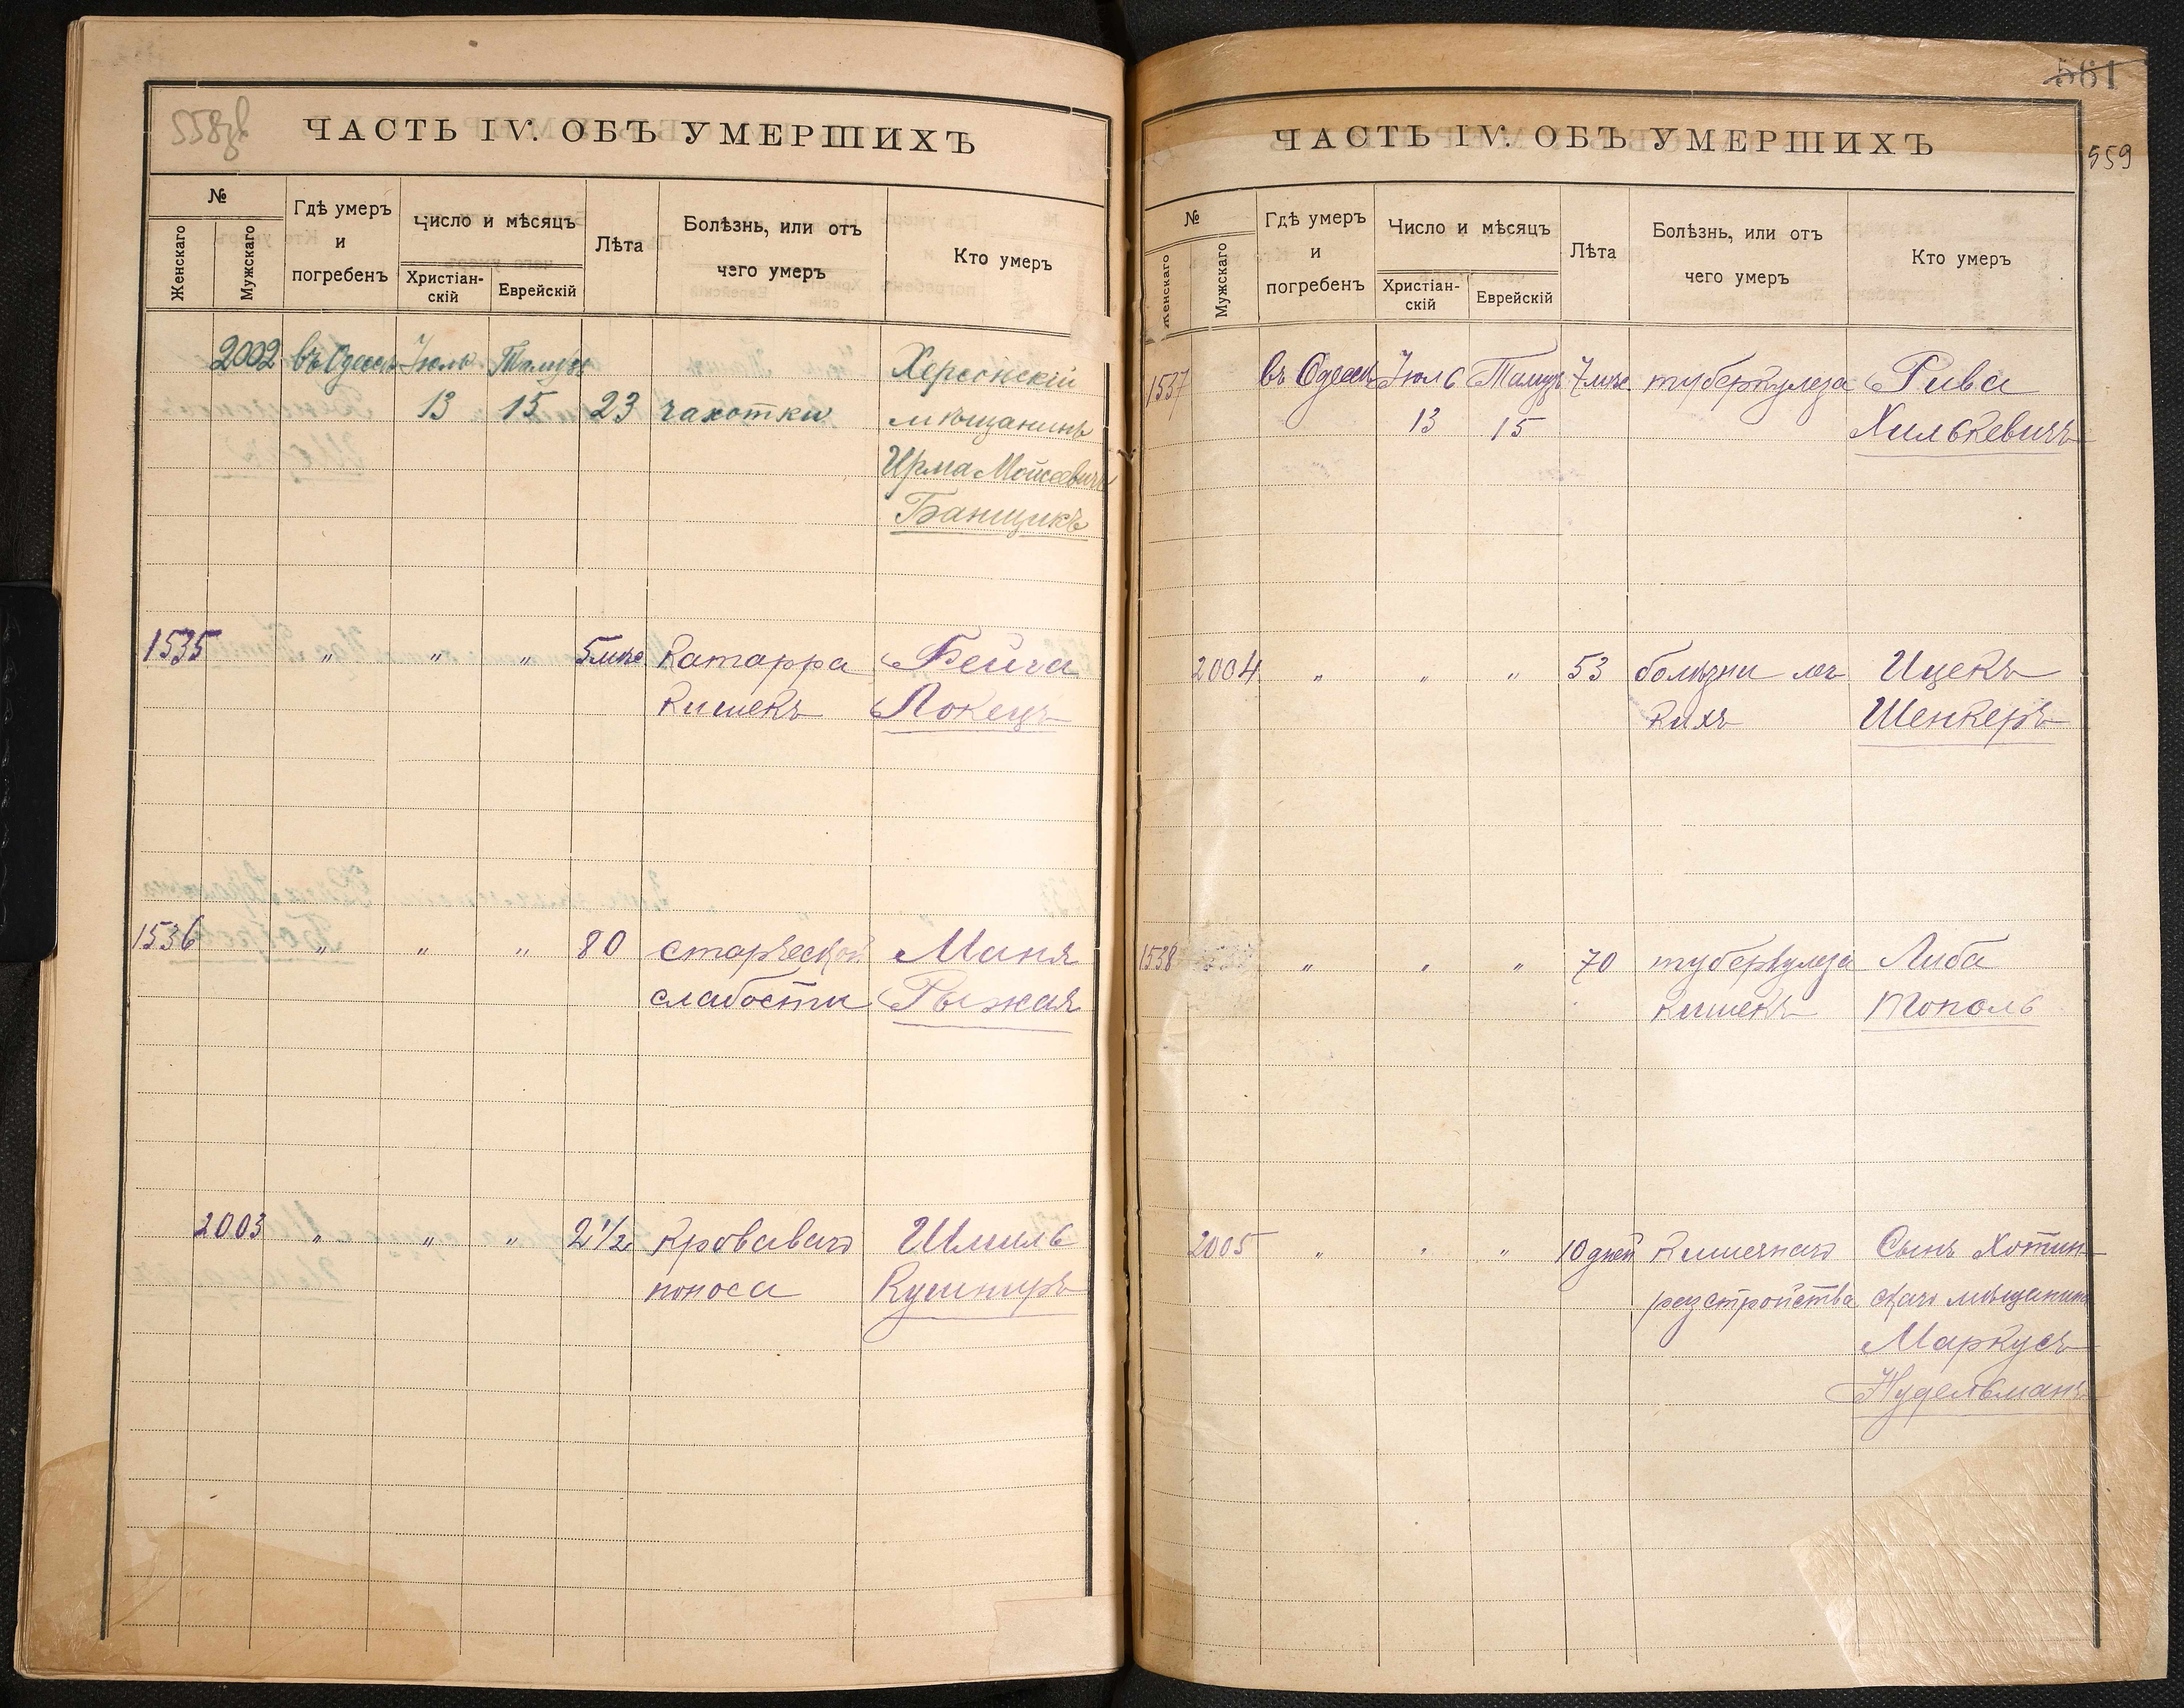 558об
ЧАСТЬ IV. ОБЪ УМЕРШИХЪ
№
Женскаго
Мужскаго
Гдѣ умеръ
и
погребенъ
Число и мѣсяцъ
Христіан-
скій
Еврейскій
Лѣта
Болѣзнь, или отъ
чего умеръ
Кто умеръ
2002 въ Одессѣ Іюль Тамузъ Херсонскій
13 15 23 чахотки мѣщанинъ
Ирма Мойсеевичъ
Банщикъ
1535 " " " 5 мѣс Катарра Бейла
кишекъ Локецъ
1536 " " " 80 старческой Маня
слабости Рыжая
2003 " " " 2 1/2 Кроваваго Шмиль
поноса Кушниръ
561
559
ЧАСТЬ IV. ОБЪ УМЕРШИХЪ
№
Женскаго
Мужскаго
Гдѣ умеръ
и
погребенъ
Число и мѣсяцъ
Христіан-
скій
Еврейскій
Лѣта
Болѣзнь, или отъ
чего умеръ
Кто умеръ
1537 въ Одессѣ Іюль Тамузъ 7 мѣс туберкулеза Рива
13 15 Хилькевичъ
2004 " " " 53 болѣзни лег Ицекъ
кихъ Шенкеръ
1538 " " " 70 туберкулеза Либа
кишекъ Тополь
2005 " " " 10 дней Кишечнаго Сынъ Хотин-
разстройства скаго мѣщанина
Маркусъ
Нудельманъ